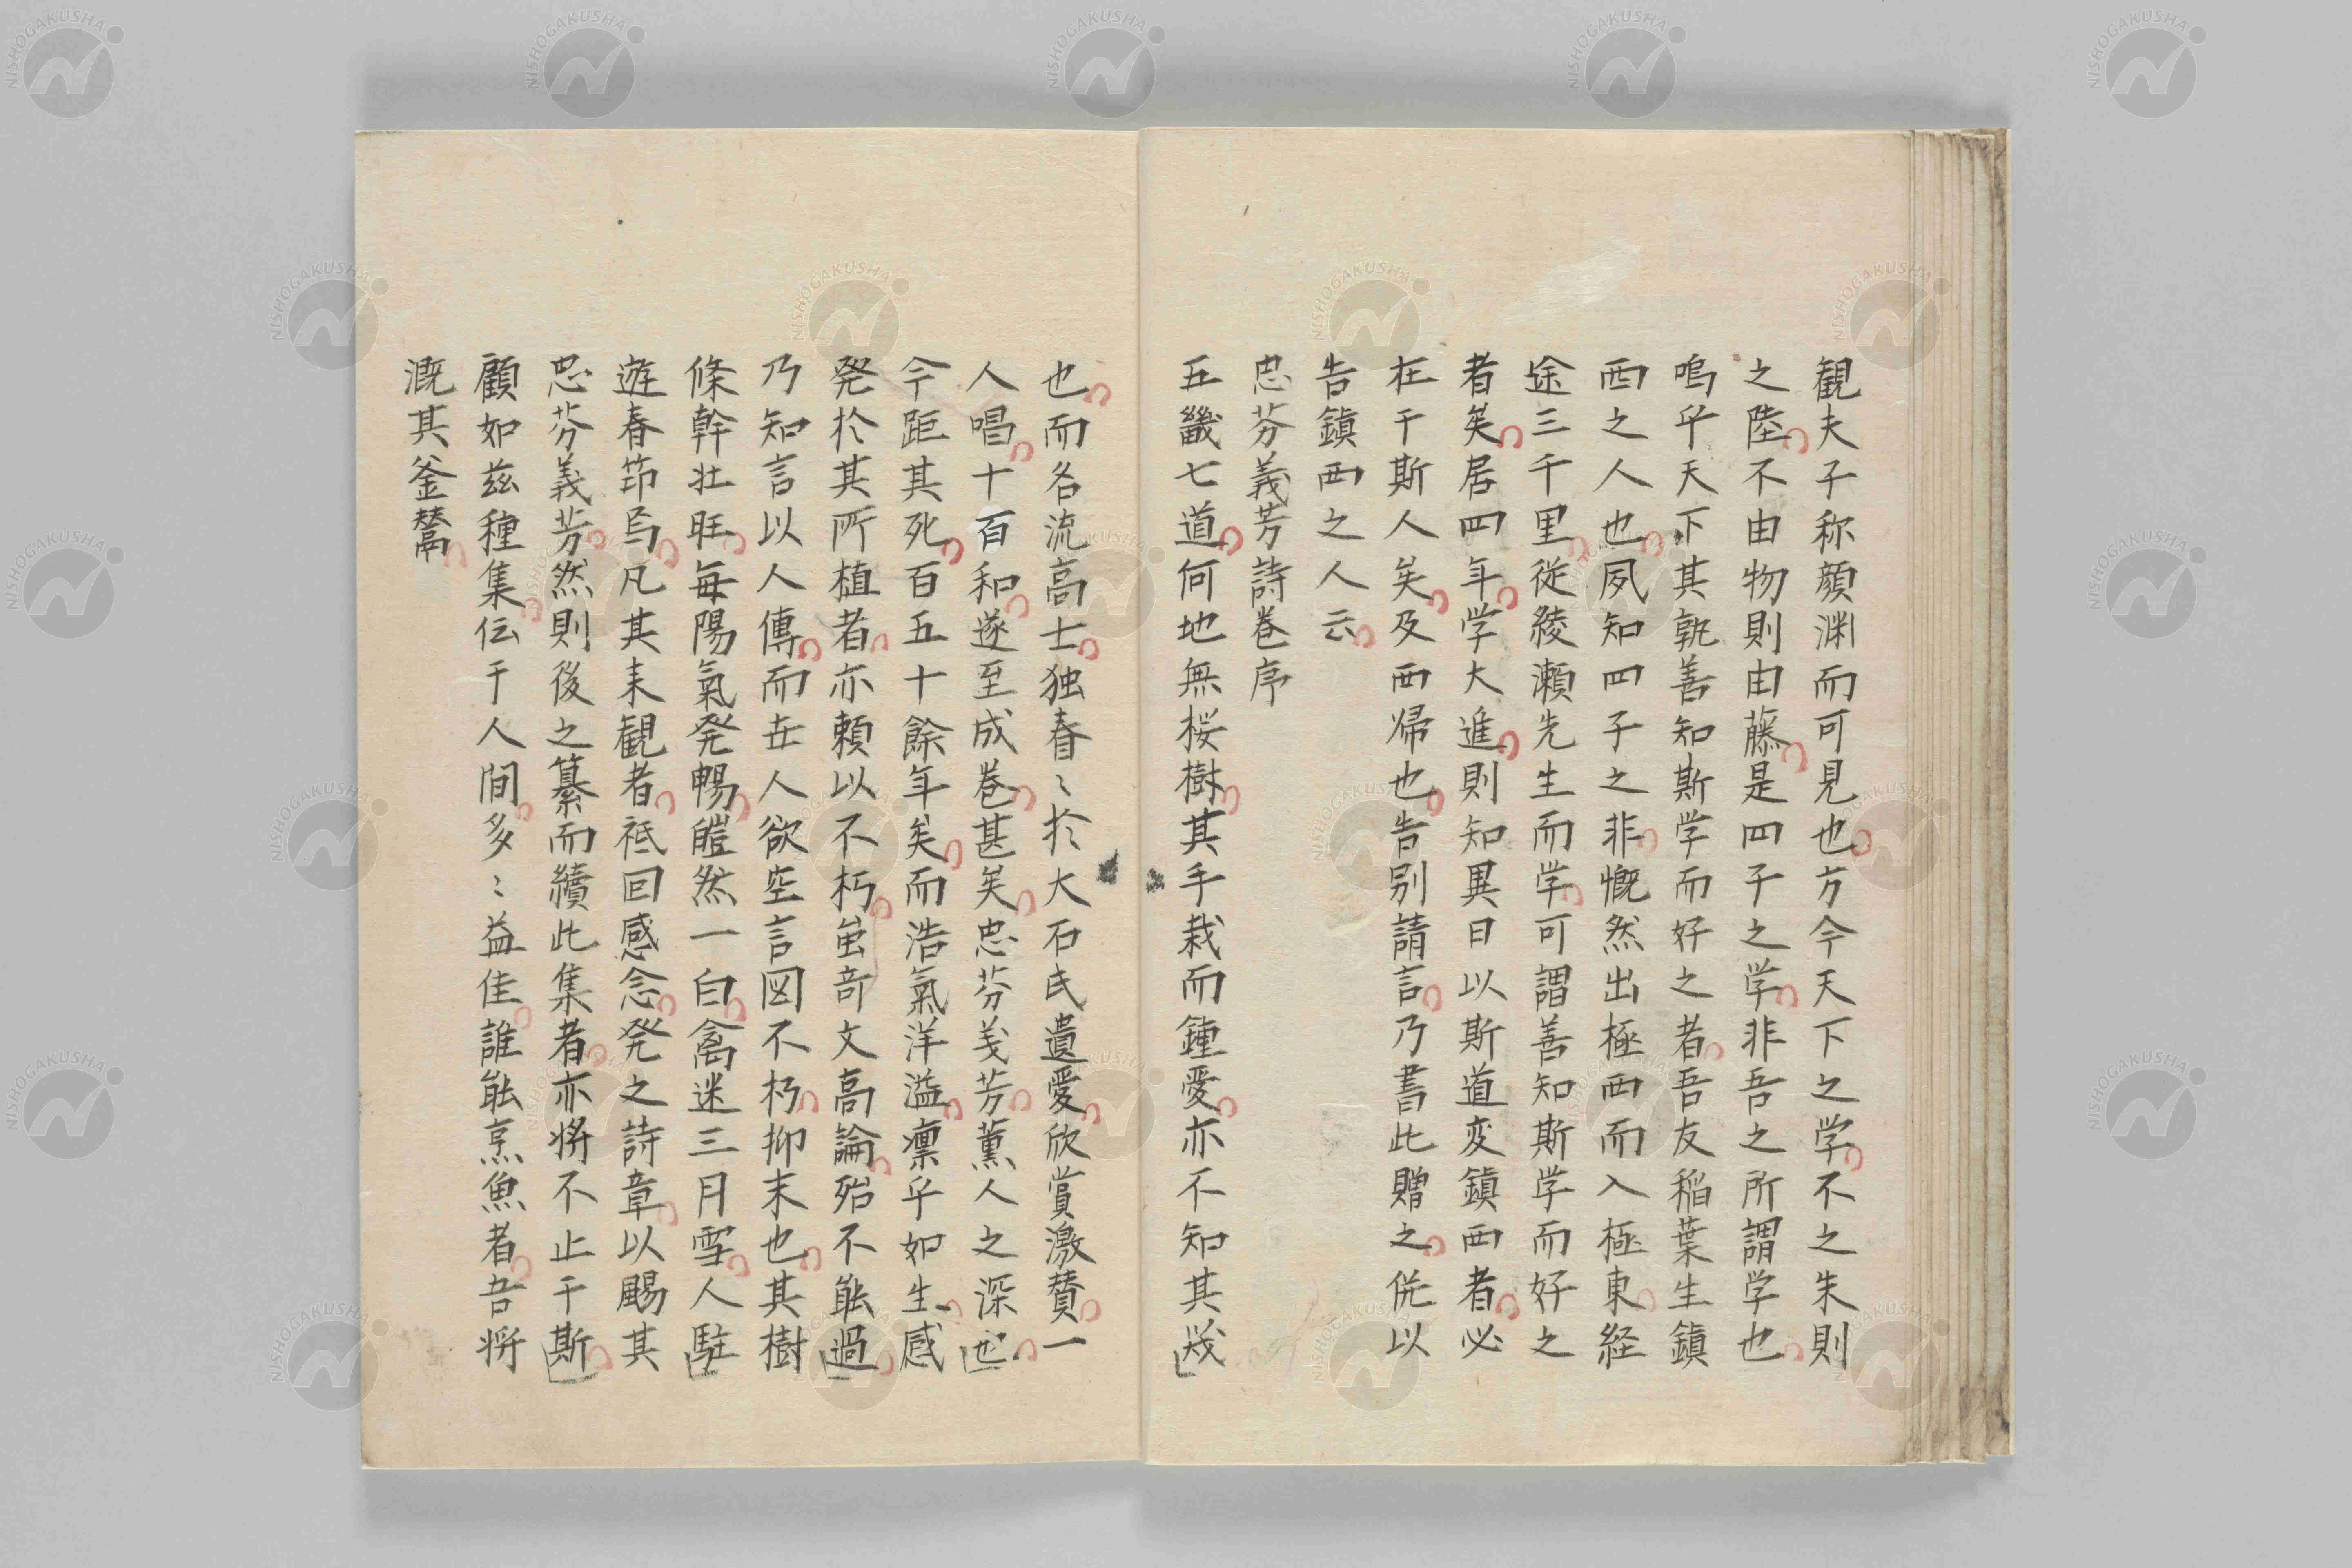 観夫子称顔渊而可見也方今天下之学不之朱則
之陸不由物則由藤是四子之学非吾之所謂学也
嗚乎天下其孰善知斯学而好之者吾友稲葉生鎮
西之人也夙知四子之非慨然出極西而入極東経
途三千里従綾瀬先生而学可謂善知斯学而好之
者矣居四年学大進則知異日以斯道変鎮西者必
在于斯人矣及西帰也告别請言乃書此贈之併以
告鎮西之人云
忠芬義芳詩巻序
五畿七道何地無桜樹其手栽而鍾愛亦不知其幾
也而各流高士独春〻於大石氏遺愛欣賞激賛一
人唱十百和遂至成巻甚矣忠芬義芳薫人之深也
今距其死百五十餘年矣而浩氣洋溢凛乎如生感
発於其所植者亦頼以不朽虽奇文高論殆不能過
乃知言以人傳而世人欲空言図不朽抑末也其樹
條幹壮旺毎陽氣発暢皚然一白禽迷三月雪人駐
遊春笻烏凡其来観者祗回感念発之詩章以賜其
忠芬義芳然則後之纂而續此集者亦将不止于斯
顧如茲種集伝于人間多〻益佳誰能烹魚者吾将
漑其釜鬵
NISHOGAKUSHA